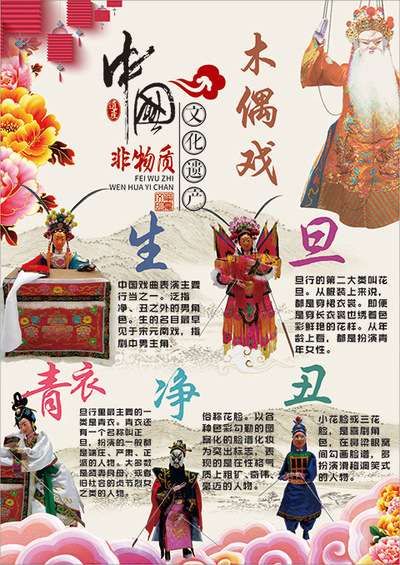 中国
非物质
FEI WU ZHI
WEN HUA YI CHAN
文化遗产
木偶戏
生
中国戏曲表演主要
行当之一。泛指
净、丑之外的男角
色。生的名目最早
见于宋元南戏，指
剧中男主角。
旦
旦行的第二大类叫花
旦。从服装上来说，
都是穿裙衣裳。即便
是穿长衣裳也绣着色
彩鲜艳的花样。从年
龄上看，都是扮演青
年女性。
青衣
旦行里最主要的一
类是青衣。青衣还
有一个名称叫正
旦，扮演的一般都
是端庄、严肃、正
派的人物。大多数
是贤妻良母，或者
旧社会的贞节烈女
之类的人物。
净
俗称花脸。以各
种色彩勾勒的图
案化的脸谱化妆
为突出标志，表
现的是在性格气
质上粗犷、奇伟、
豪迈的人物。
丑
小花脸或三花
脸，是喜剧角
色，在鼻梁眼窝
间勾画脸谱，多
扮演滑稽调笑式
的人物。